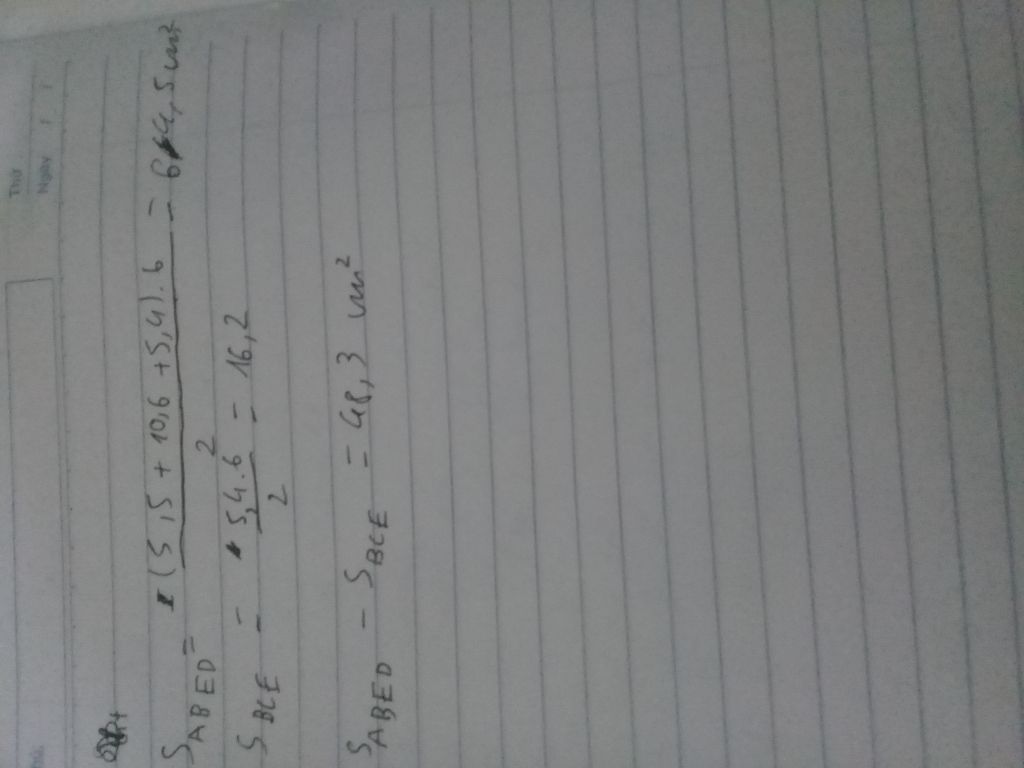 Thứ
Ngày
S ABED = (5,5 + 10,6 + 5,4) . 6 / 2 = 64,5 cm²
S BCE = 5,4 . 6 / 2 = 16,2
S ABED - S BCE = 48,3 cm²